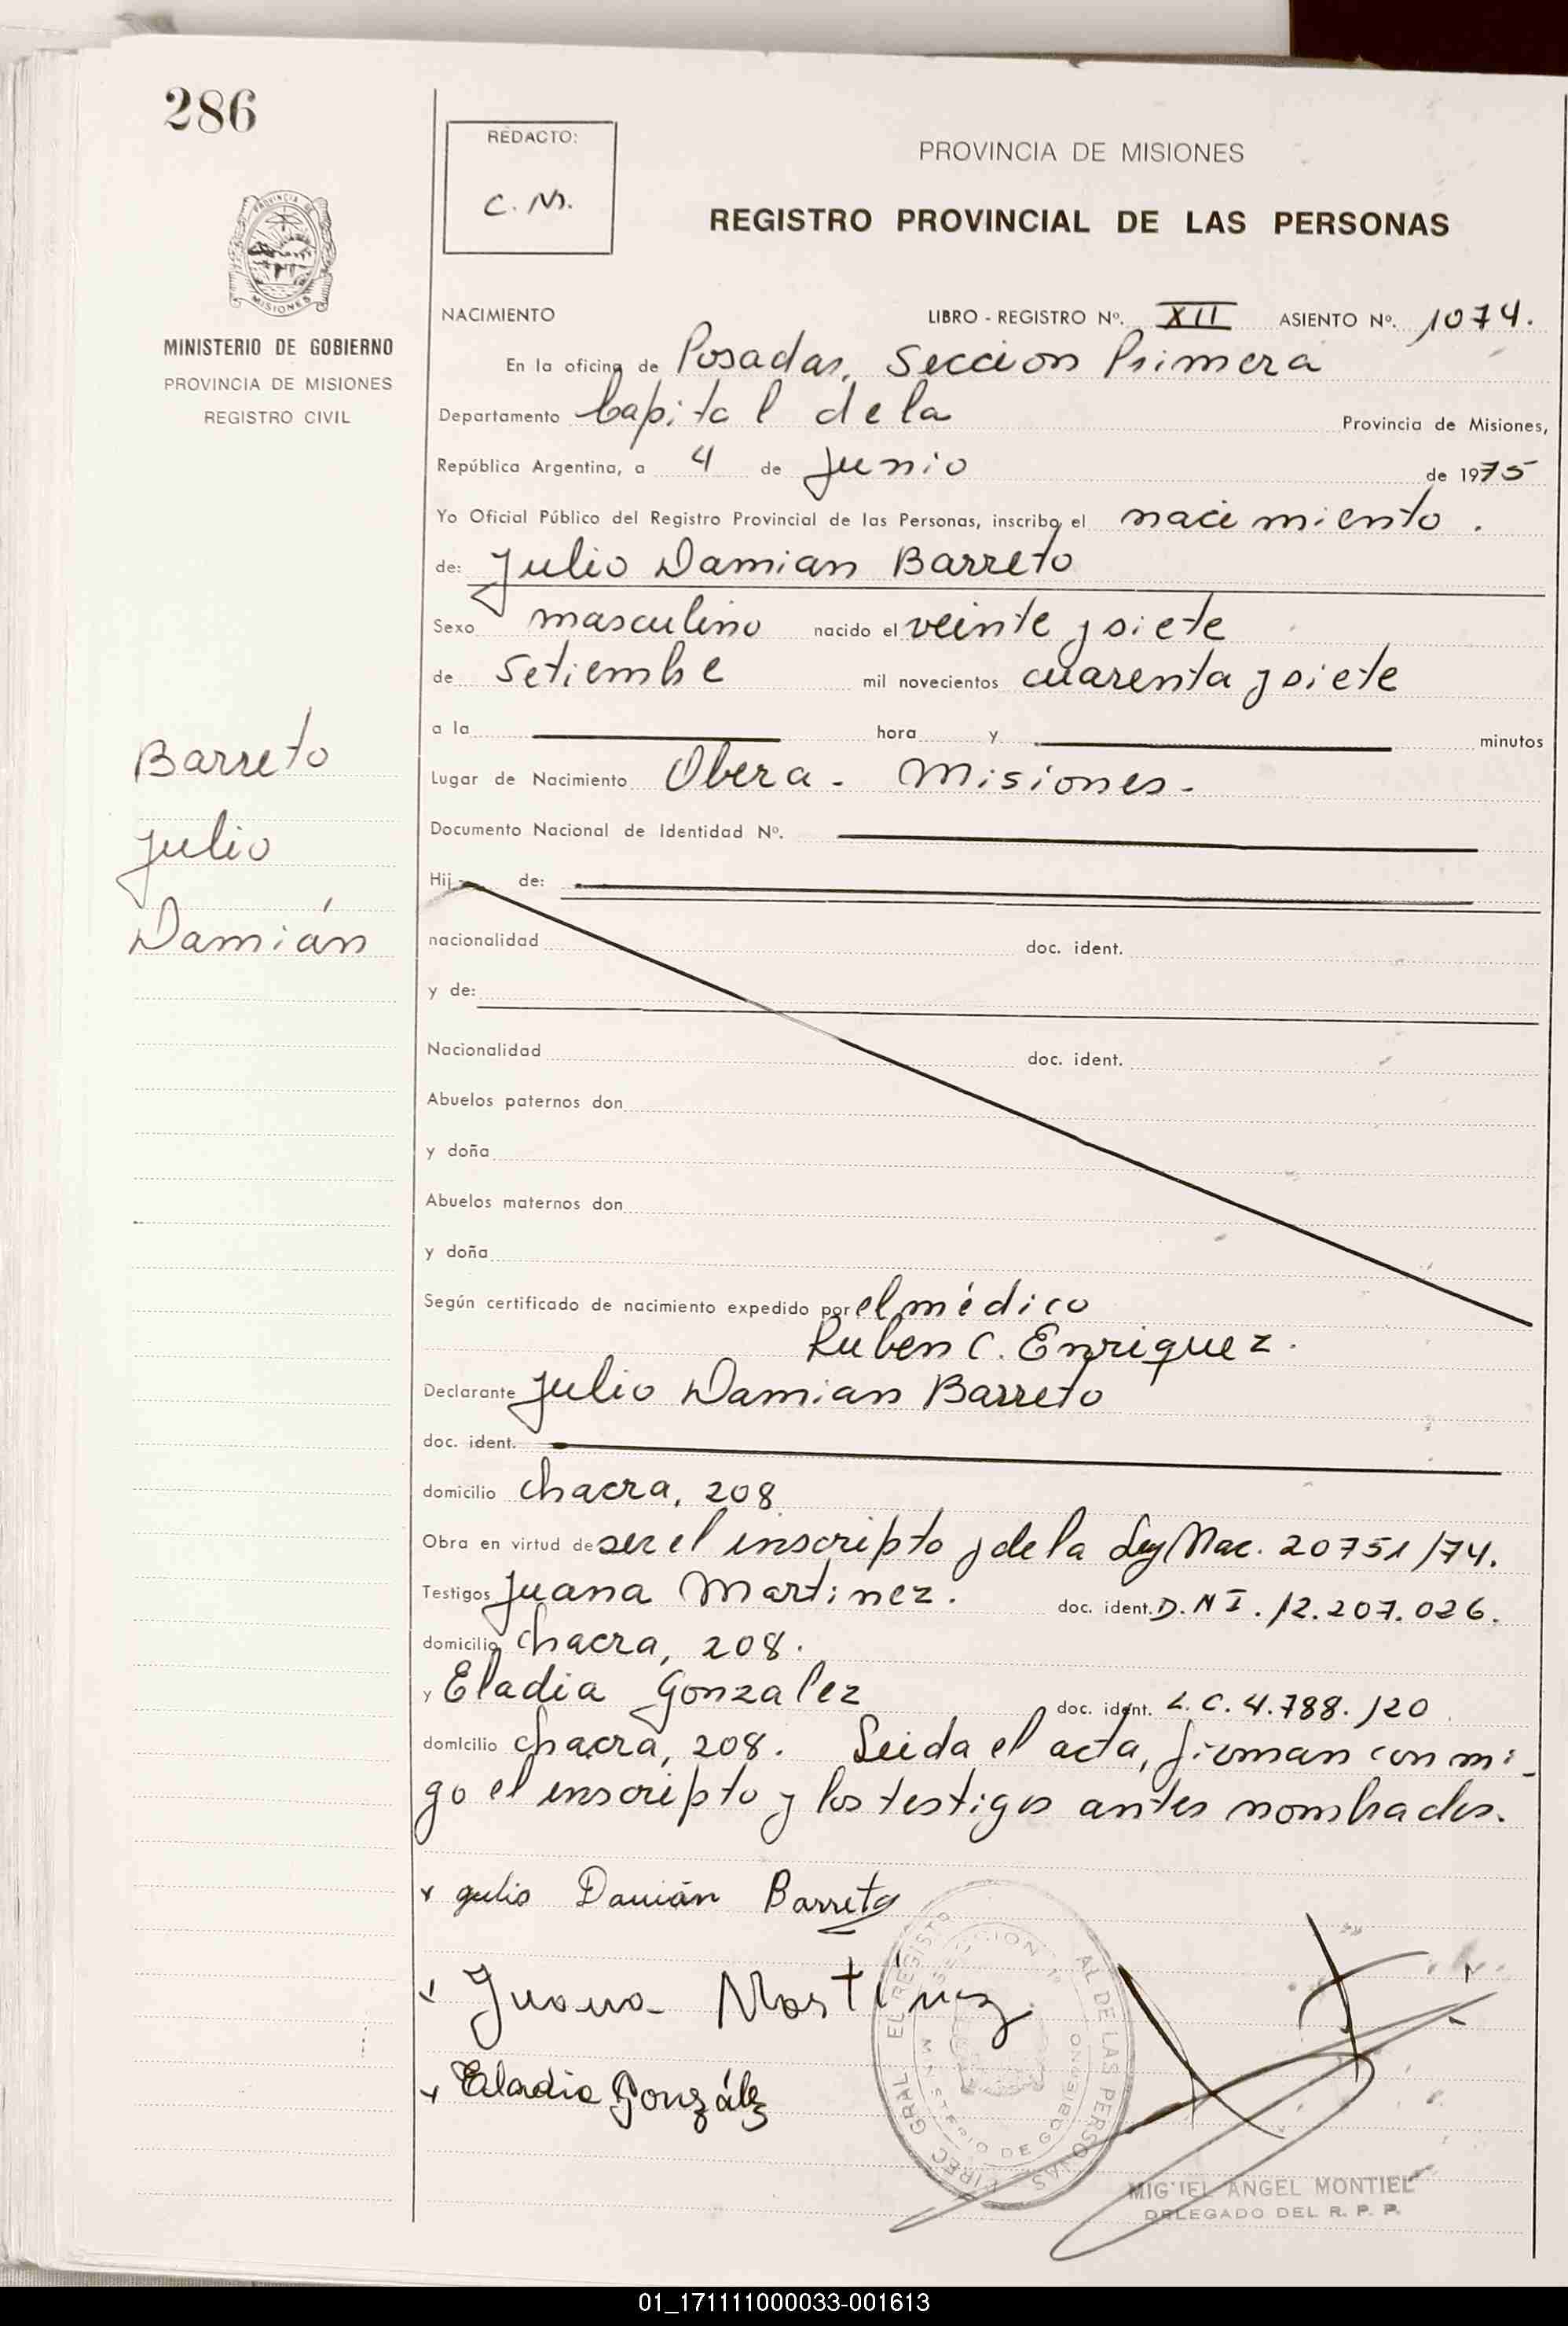 286
REDACTO:
C. M.
PROVINCIA DE MISIONES
REGISTRO PROVINCIAL DE LAS PERSONAS
PROVINCIA DE
MISIONES
MINISTERIO DE GOBIERNO
PROVINCIA DE MISIONES
REGISTRO CIVIL
NACIMIENTO LIBRO - REGISTRO Nº. XII ASIENTO Nº. 1074.
En la oficina de Posadas, Seccion Primera
Departamento Capital de la Provincia de Misiones,
República Argentina, a 4 de Junio de 1975
Yo Oficial Público del Registro Provincial de las Personas, inscribo el nacimiento.
de: Julio Damian Barreto
Sexo masculino nacido el veinte y siete
de Setiembre mil novecientos cuarenta y siete
a la hora y minutos
Lugar de Nacimiento Obera - Misiones -
Documento Nacional de Identidad Nº.
Hij de:
nacionalidad doc. ident.
y de:
Nacionalidad doc. ident.
Abuelos paternos don
y doña
Abuelos maternos don
y doña
Según certificado de nacimiento expedido por el médico
Ruben C. Enriquez.
Declarante Julio Damian Barreto
doc. ident.
domicilio chacra, 208
Obra en virtud de ser el inscripto y de la Ley Nac. 20751/74.
Testigos Juana Martinez. doc. ident. D.N I. 12.207.026.
domicilio chacra, 208.
y Eladia Gonzalez doc. ident. L.C. 4.788.120
domicilio chacra, 208. Leida el acta, firman con mi-
go el inscripto y los testigos antes nombrados.
Barreto
Julio
Damián
Julio Damián Barreto
Juana Martinez
Eladia González
DIREC. GRAL EL REGIST AL DE LAS PERSONAS
SECCION 1ª
MINISTERIO DE GOBIERNO
MIGUEL ANGEL MONTIEL
DELEGADO DEL R. P. P.
01_171111000033-001613